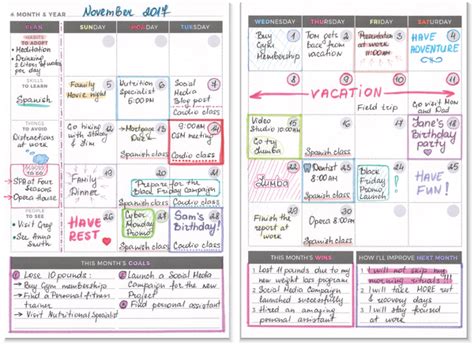 4 MONTH & YEAR
November 2017
YEAR
SUNDAY
MONDAY
TUESDAY
HABITS
TO ADOPT
• Meditation
• Drinking
2 liters of water
per day
SKILLS TO
LEARN
Spanish
THINGS TO
AVOID
Distractions
at work
PLACES
TO GO
→ SPA at Four
Seasons
→ Opera House
PEOPLE TO
SEE
• Visit Greg
• See Aunt
Smith
5
Family
Movie night
6
Nutrition
Specialist
6:00PM
7
Social
Media
Blog post
Cardio class
12
Go hiking
with Stacy
13
Mortgage
Due
Spanish class
14
9:00AM
CEM meeting
Cardio class
19
Family
Dinner
20
21
Prepare for the
Black Friday Campaign
Spanish class
Cardio class
26
HAVE
REST
27
Cyber
Monday
Promo
Spanish class
28
Sam's
Birthday!
Cardio class
THIS MONTH'S GOALS
1 Lose 10 pounds:
→ Buy Gym membership
→ Find a Personal fitness
trainer
→ Visit Nutritional Specialist
2 Launch a Social Media
Campaign for the new
Project
3 Find personal assistant
WEDNESDAY
THURSDAY
FRIDAY
SATURDAY
1
Buy
Gym
Membership
2
Tom gets
back from
vacation
3
Presentation
at work
11:00AM
4
HAVE
ADVENTURE
8
9
10
11
VACATION
Field trip
Go visit Mom
and Dad
15
Video
Studio 10:00AM
Go try
Zumba
16
Spanish class
17
18
Jane's
Birthday
party
22
Zumba
23
Dentist
8:00AM
Spanish class
24
Black
Friday
Promo
Launch
25
HAVE
FUN!
29
Finish the
report at
work
30
Opera 8:00PM
Spanish class
THIS MONTH'S WINS
1 Lost 11 pounds due to my
new weight loss program!
2 Social Media Campaign
launched successfully
3 Hired an amazing
personal assistant
HOW I'LL IMPROVE NEXT MONTH
1 I will not skip my
morning rituals!!!
2 I will take MORE rest
& recovery days
3 I will stay focused
at work